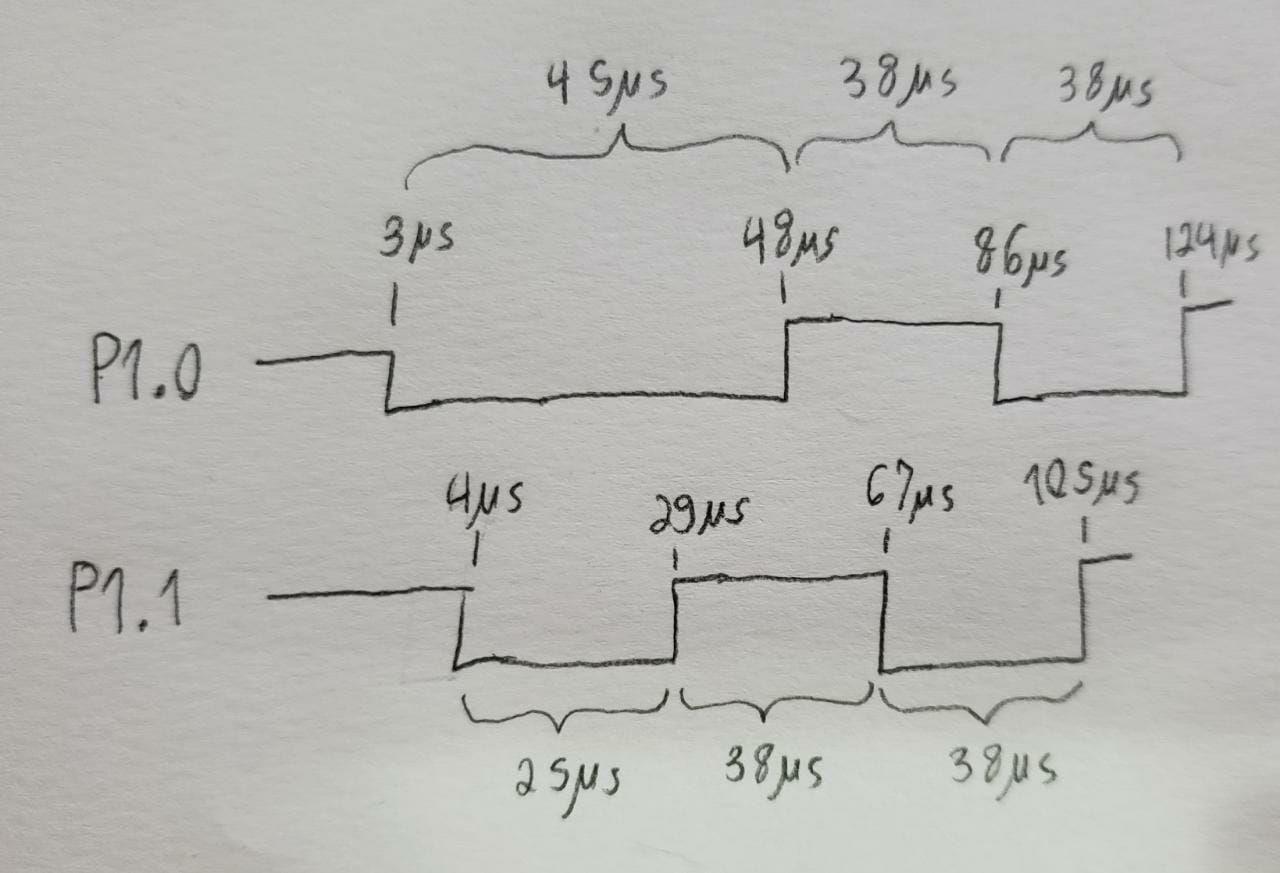 45µs 38µs 38µs
3µs 48µs 86µs 124µs
P1.0
4µs 29µs 67µs 105µs
P1.1
25µs 38µs 38µs